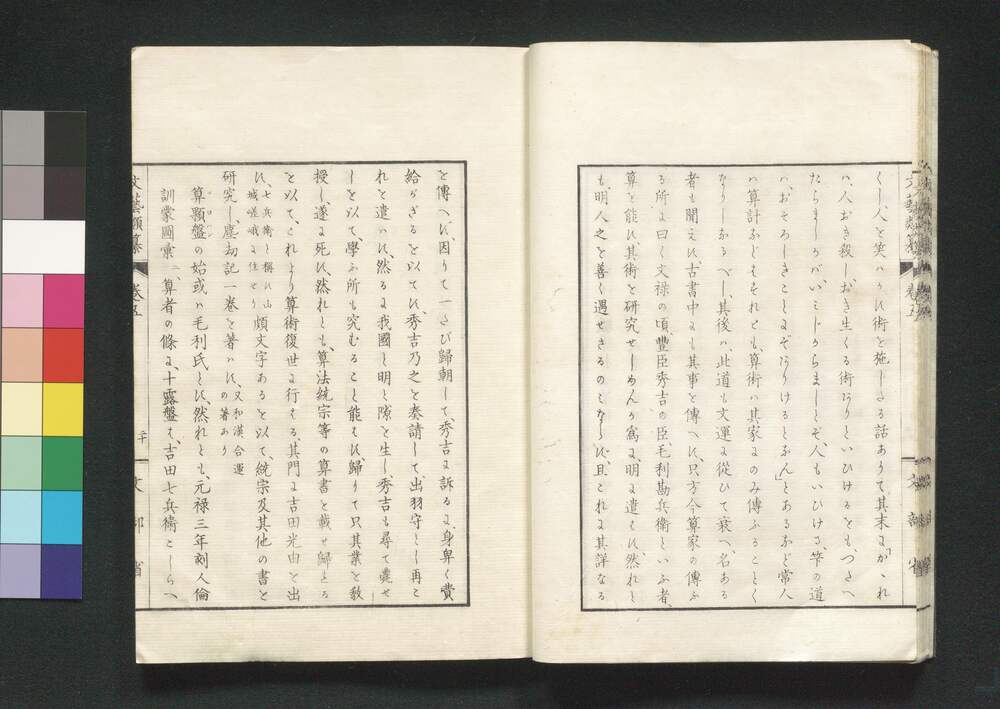 くし、人を笑ハかす術を施したる話ありて其末に「かゝれ
ハ、人おき殺しおき生くる術ありといひけるとも、つたへ
たらましかバいミじからましとぞ、人もいひけるさ、竿の道
ハ、おそろしきことにぞありけるとなん」とあるなど常人
ハ算計なしをもそれとも、算術ハ其家にのみ傳ふることく
なりしなるべし、其後ハ此道も文運に從ひて衰へ、名ある
者も聞えす、古書中にも其事を傳へす、只方今算家の傳ふ
る所に曰く文祿の頃、豐臣秀吉の臣、毛利勘兵衛といふ者、
算を能す其術を研究せしめんか爲に、明に遣はす、然れと
も、明人之を善く遇せさるのミならす、且これに其詳なる
文藝類纂 卷五 文部省
を傳へす、因りて一たび歸朝して、秀吉に訴るに、身卑く貴
給かざるを以てす、秀吉乃之を奏請して、出羽守とし再ひ
これを遣ハす、然るに我國と明と隙を生し、秀吉も尋て薨せ
しを以て、學ふ所も究むること能はす、歸りて只其業を敎
授し、遂に死す、然れとも、算法統宗等の算書を載せ歸たる
を以て、これより算術復世に行はる其門に吉田光由を出
す、七兵衛と稱す山城嵯峨に住せり頗文字あるを以て、統宗及其他の書を
研究し、塵劫記一卷を著ハす、又和漢合運の著あり
算顆盤の始或ハ毛利氏とす、然れとも、元祿三年刻人倫
訓蒙圖彙ニ、算者の條に、十露盤は、吉田七兵衛こしらへ
文藝類纂 卷五 文部省